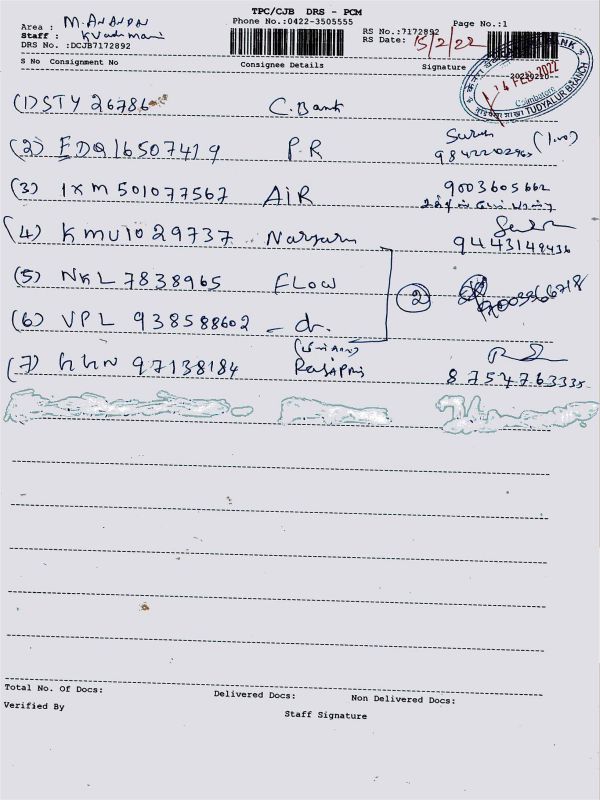 TPC/CJB DRS - PCM
Area : M.ANANDAN
Phone No.:0422-3505555
Page No.:1
Staff :
RS No.:7172892
DRS No. :DCJB7172892
RS Date: 15/2/22
S No Consignment No
Consignee Details
Signature
14 FEB 2022
Coimbatore
TUDYALUR BRANCH
(1) STY 26786
C. Bank
(2) EDQ16507419
P.R
Suresh
(3) IXM 501077567
AIR
9003605662
(4) KMU1029737
9443149436
(5) NKL 7838965
FLOW
2
(6) VPL 938588602 - dr.
(7) KKN 97138184
8754763335
Total No. Of Docs:
Delivered Docs:
Non Delivered Docs:
Verified By
Staff Signature